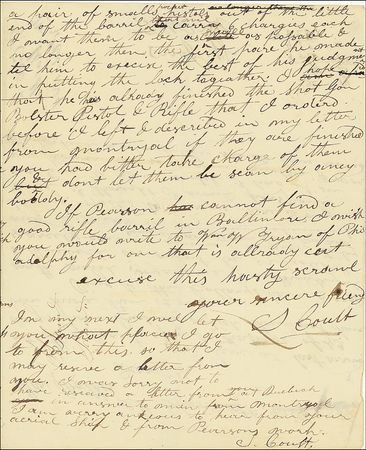 a pair of small Pistols
end of the barril to carry charges each
I want them to be as as possable &
no longer then the first pare he made
tel him to excise the best of his Judgment
in putting the lock togather. I
that he has allready finished the Shot Gon
Holster Pistol & Rifle that I orderd
before I left I described in my letter
from montrjoal if they are finished
you had bitter take charge of them
& dont let them be sean by aney
boddy.
If Pearson cannot find a
good rifle barril in Balltimore I wish
you would write to Tryon of Phi
adelphy for one that is allready cut
excuse this haisty scrawl
your sincere friend
S Coult
P. S.
In my next I will let
you I go
to from this. so that I
may receve a letter from
you. I was sorry not to
have receved a letter from you at
in answer to mine from Montryol
I am verry ankcious to heir from your
aerial Ship & from Pearsons work.
S. Coult.